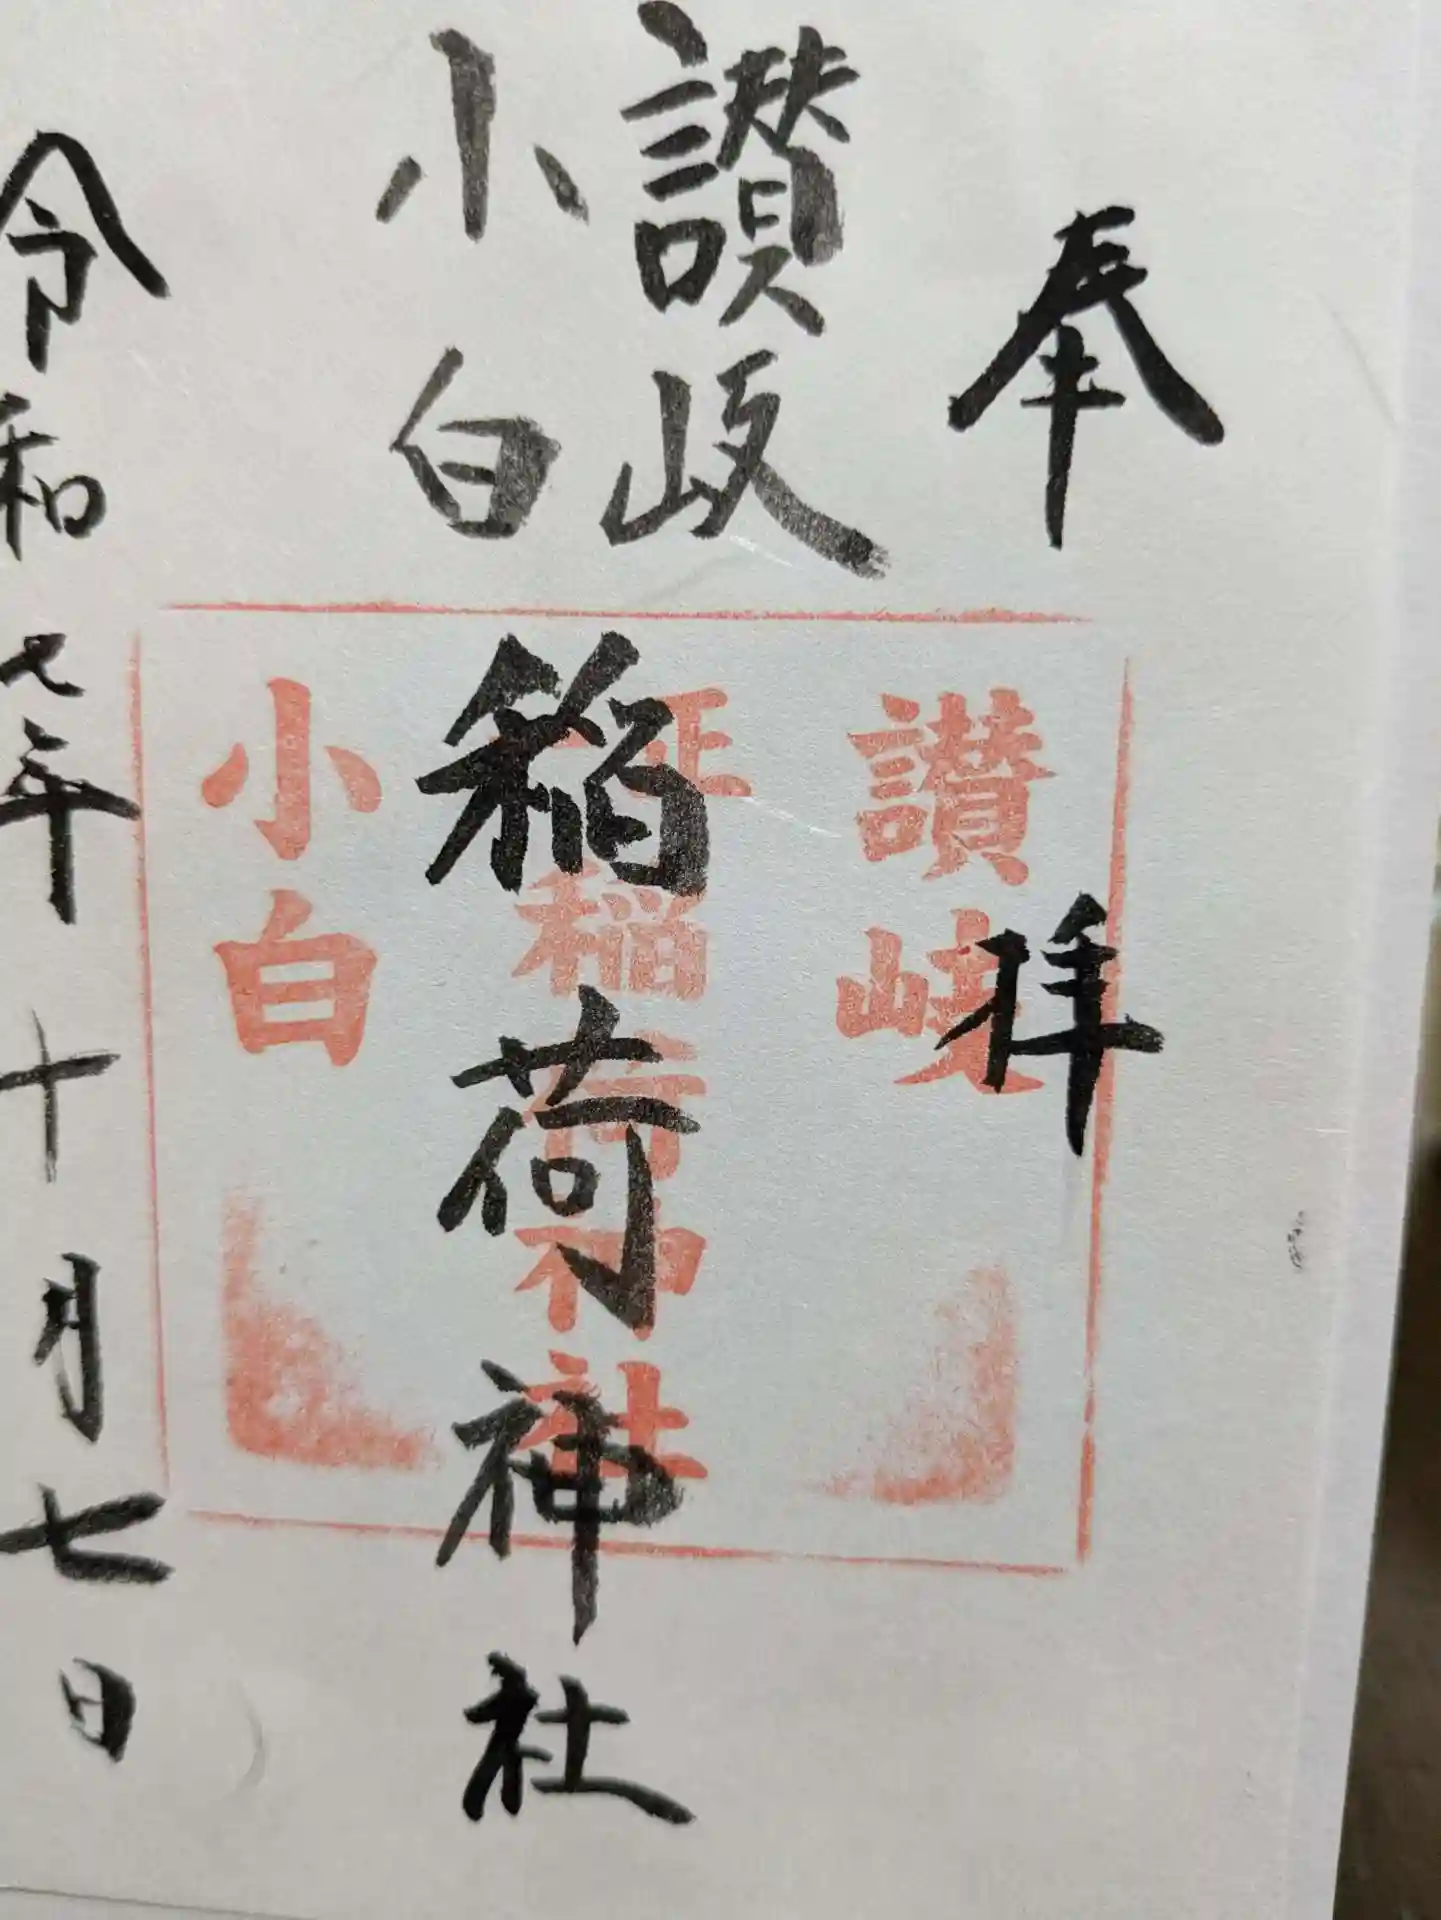 奉拝
讃岐
小白
稲荷神社
令和七年十月七日
讃岐
正
稲荷神社
小白